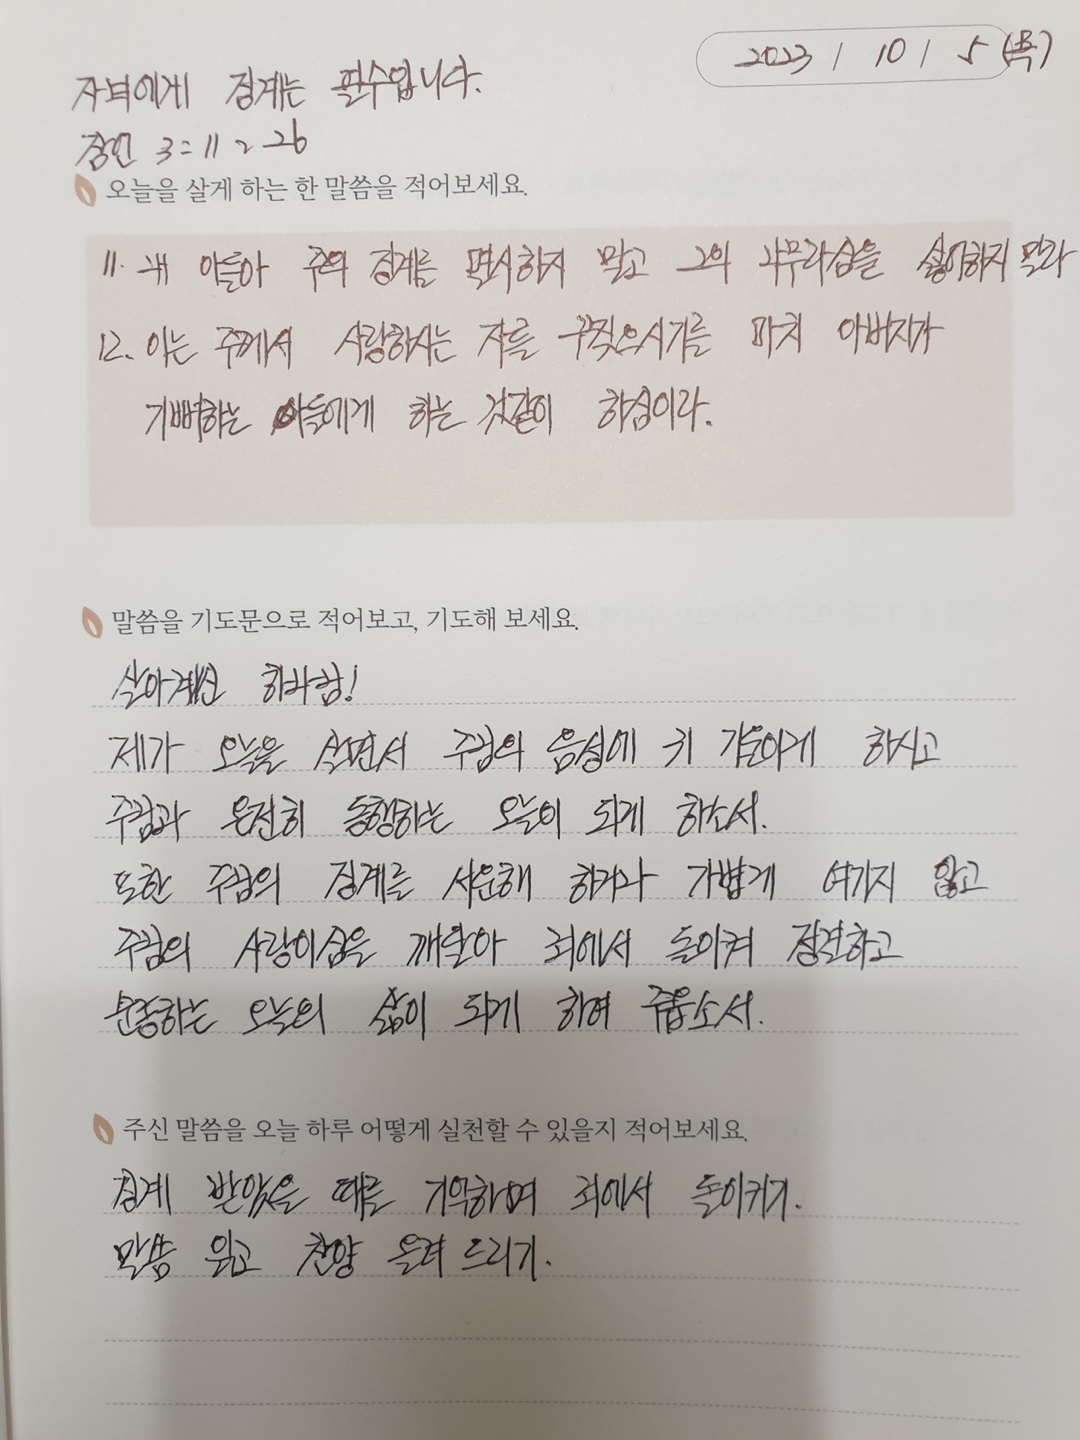 2023 / 10 / 5 (목)
자녀에게 징계는 필수입니다.
잠언 3:11~26
오늘을 살게 하는 한 말씀을 적어보세요.
11. 내 아들아 주의 징계를 멸시하지 말고 그의 나무라심을 싫어하지 말라
12. 이는 주께서 사랑하시는 자를 꾸짖으시기를 마치 아버지가
기뻐하는 아들에게 하는 것같이 하심이라.
말씀을 기도문으로 적어보고, 기도해 보세요.
살아계신 하나님!
제가 오늘을 살면서 주님의 음성에 귀 기울이게 하시고
주님과 온전히 동행하는 오늘이 되게 하소서.
또한 주님의 징계를 서운해 하거나 가볍게 여기지 않고
주님의 사랑이심을 깨달아 죄에서 돌이켜 정결하고
순종하는 오늘의 삶이 되게 하여 주옵소서.
주신 말씀을 오늘 하루 어떻게 실천할 수 있을지 적어보세요.
징계 받았을 때를 기억하며 죄에서 돌이키기.
말씀 읽고 찬양 올려 드리기.